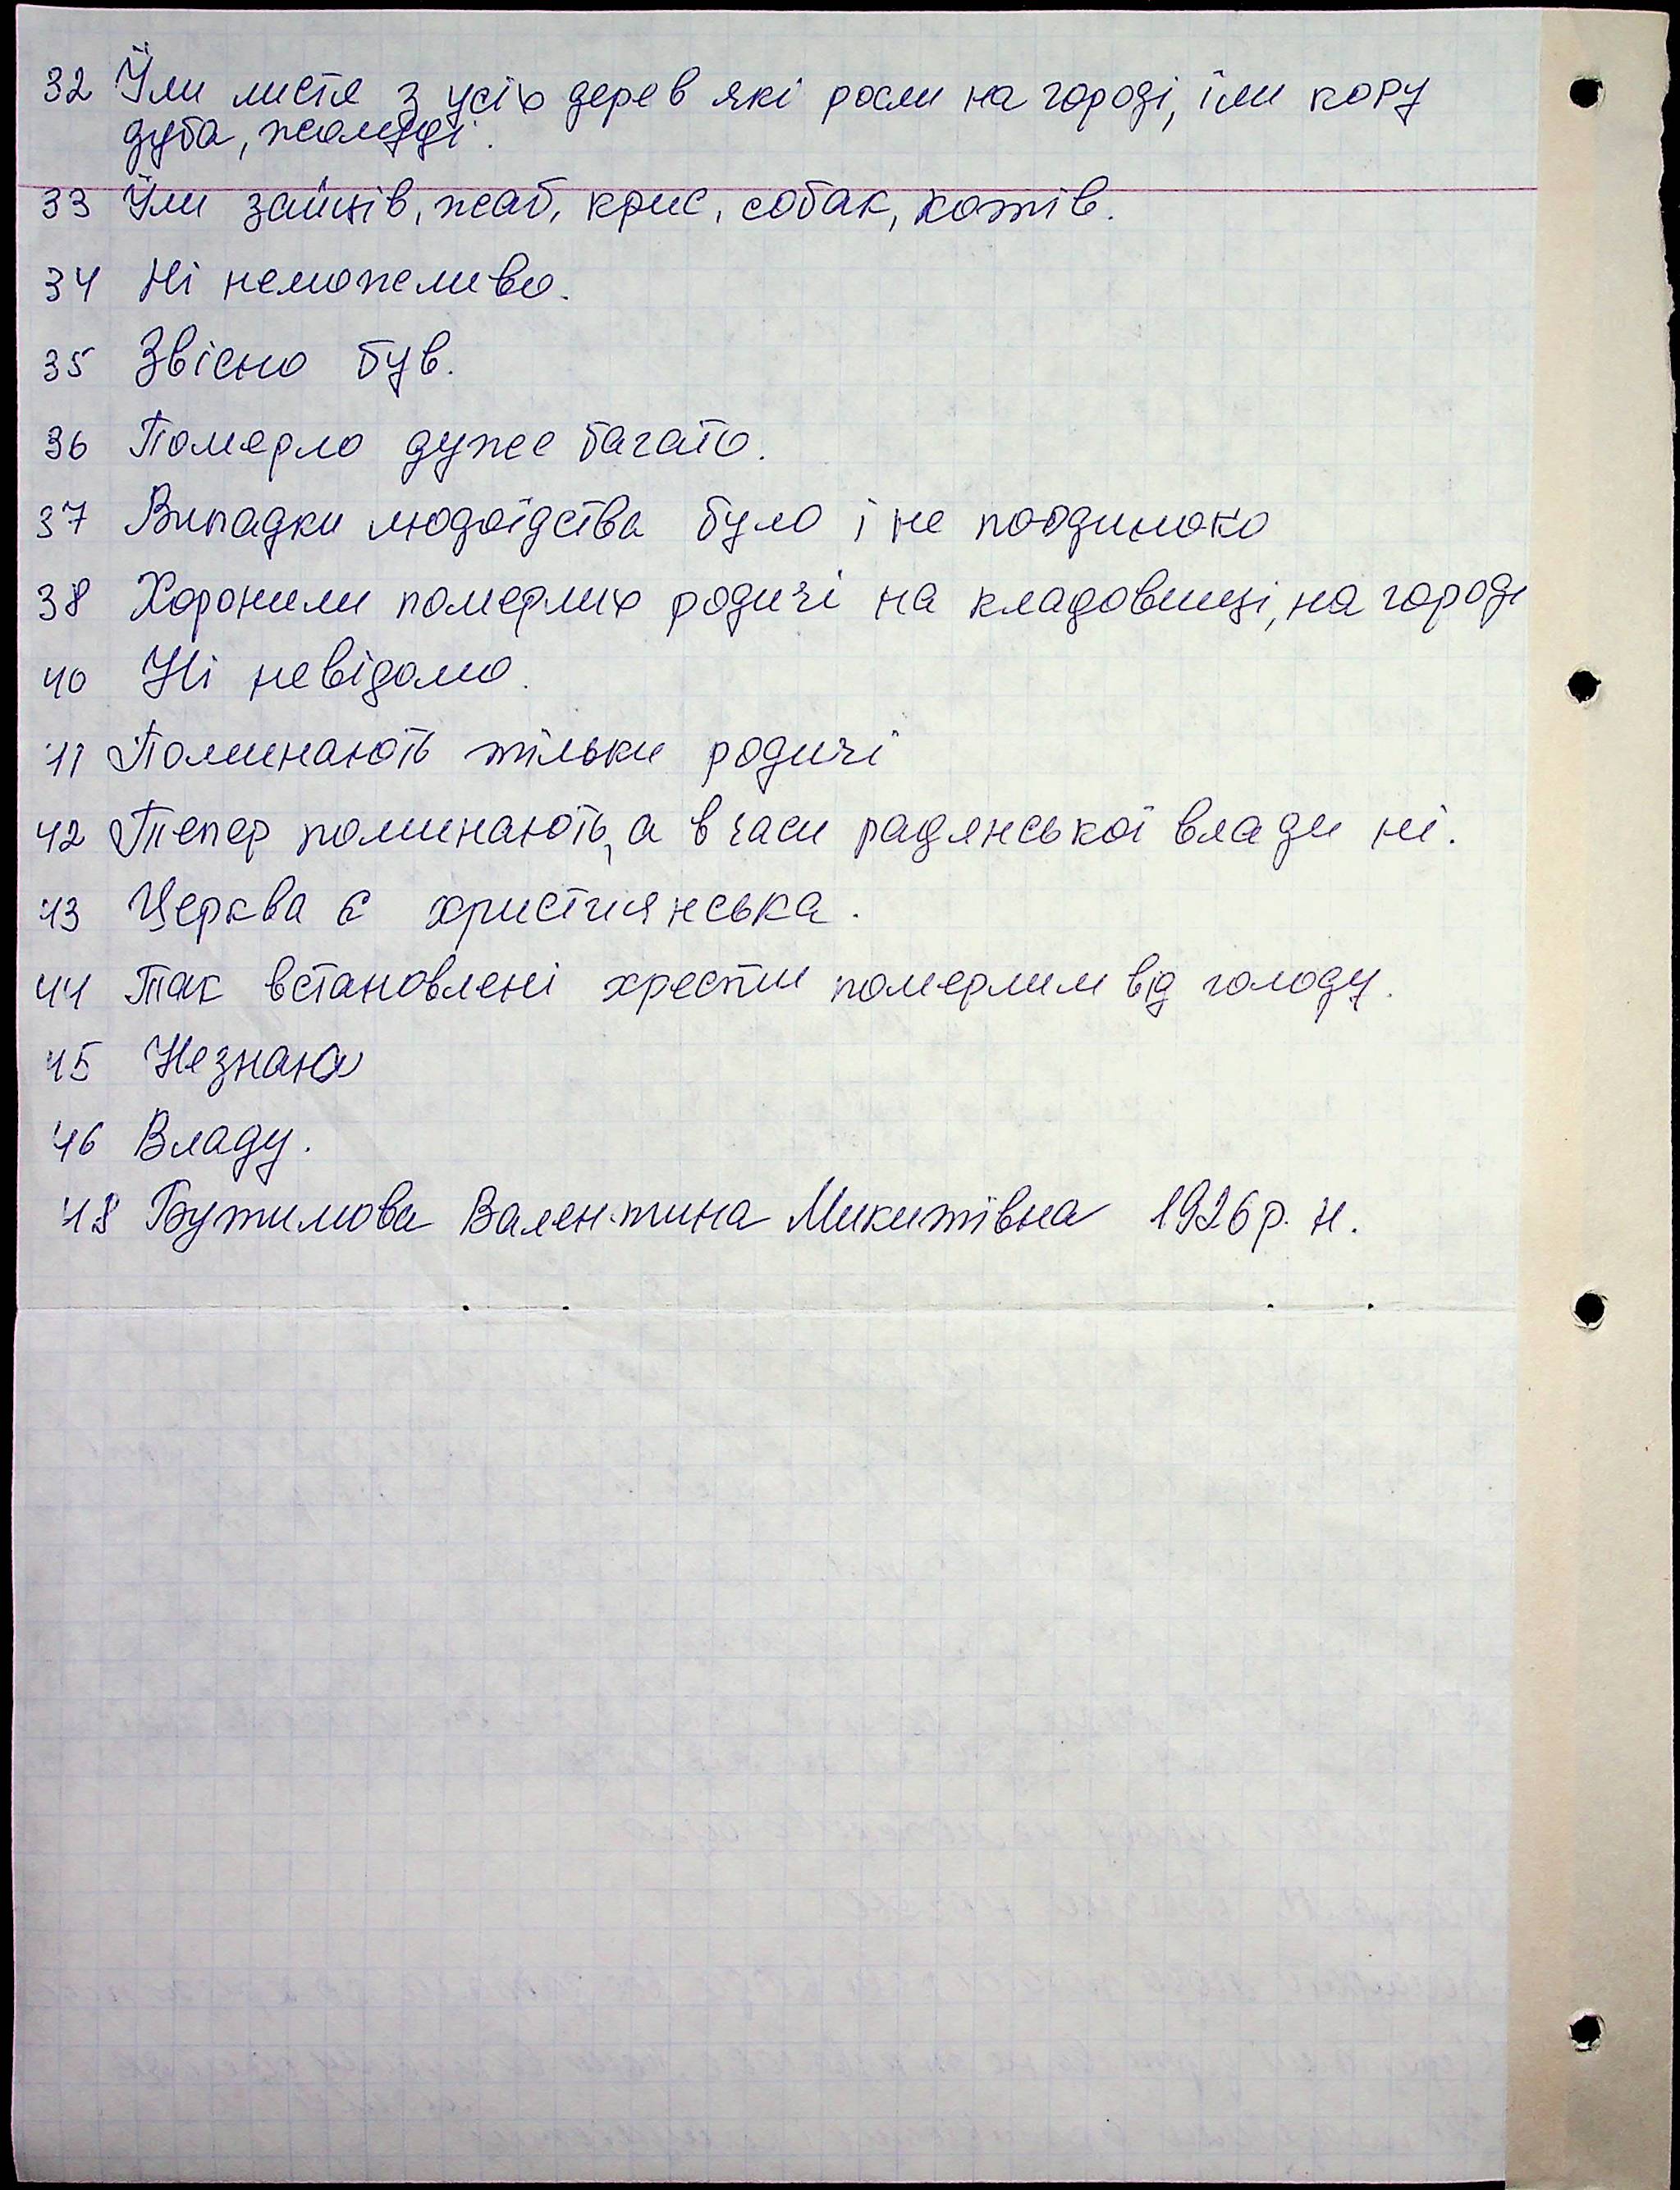 32 Їли листя з усіх дерев які росли на городі, їли кору
дуба, жолуді.
33 Їли зайців, жаб, крис, собак, котів.
34 Ні неможливо.
35 Звісно був.
36 Померло дуже багато.
37 Випадки людоїдства було і не поодиноко
38 Хоронили померлих родичі на кладовищі, на городі
40 Ні невідомо.
41 Поминають тільки родичі
42 Тепер поминають, а в часи радянської влади ні.
43 Церква є християнська.
44 Так встановлені хрести померлим від голоду.
45 Незнаю
46 Владу.
48 Бутимова Валентина Микитівна 1926 р. н.